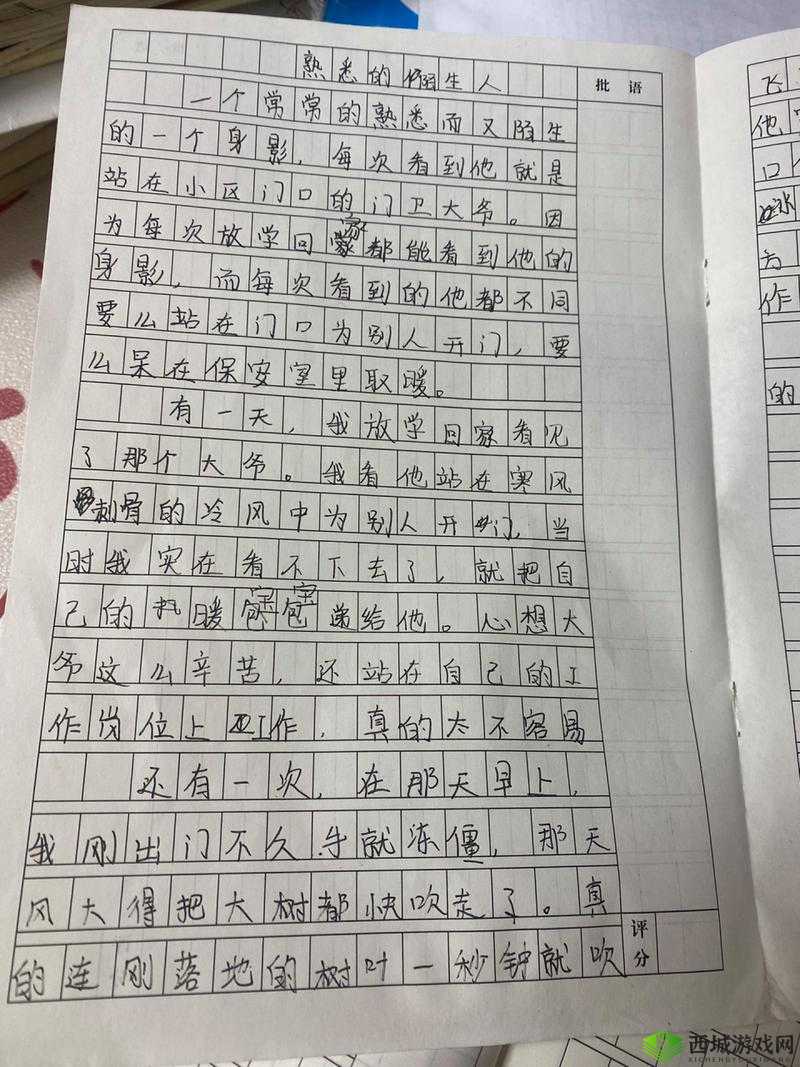 熟悉的陌生人
批语
一个常常的熟悉而又陌生
的一个身影，每次看到他就是
站在小区门口的门卫大爷。因
为每次放学回家都能看到他的
身影，而每次看到的他都不同
要么站在门口为别人开门，要
么呆在保安室里取暖。
有一天，我放学回家看见
了那个大爷。我看他站在寒风
刺骨的冷风中为别人开门，当
时我实在看不下去了，就把自
己的热暖宝宝递给他。心想大
爷这么辛苦，还站在自己的工
作岗位上工作，真的太不容易
还有一次，在那天早上，
我刚出门不久手就冻僵，那天
风大得把大树都快吹走了。真
的连刚落地的树叶一秒钟就吹
评分
飞
他
口
冰
方
作
的
西城游戏网
XICHENGYOUXIWANG